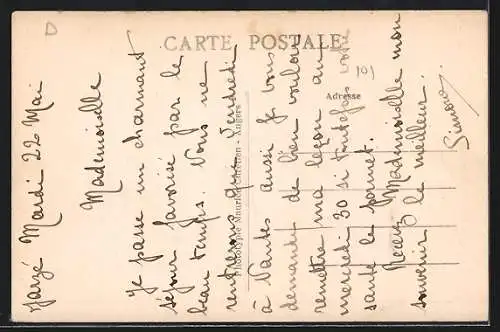 CARTE POSTALE
Adresse
101
D
Phototypie Maurice Chrétien - Angers
Jarzé Mardi 22 Mai
Mademoiselle
Je passe un charmant
séjour favorisé par le
beau temps. Nous ne
rentrerons que Vendredi
à Nantes aussi je vous
demande de bien vouloir
remettre ma leçon au
mercredi 30 si toutefois votre
santé le permet.
Recevez Mademoiselle mon
souvenir le meilleur.
Simone